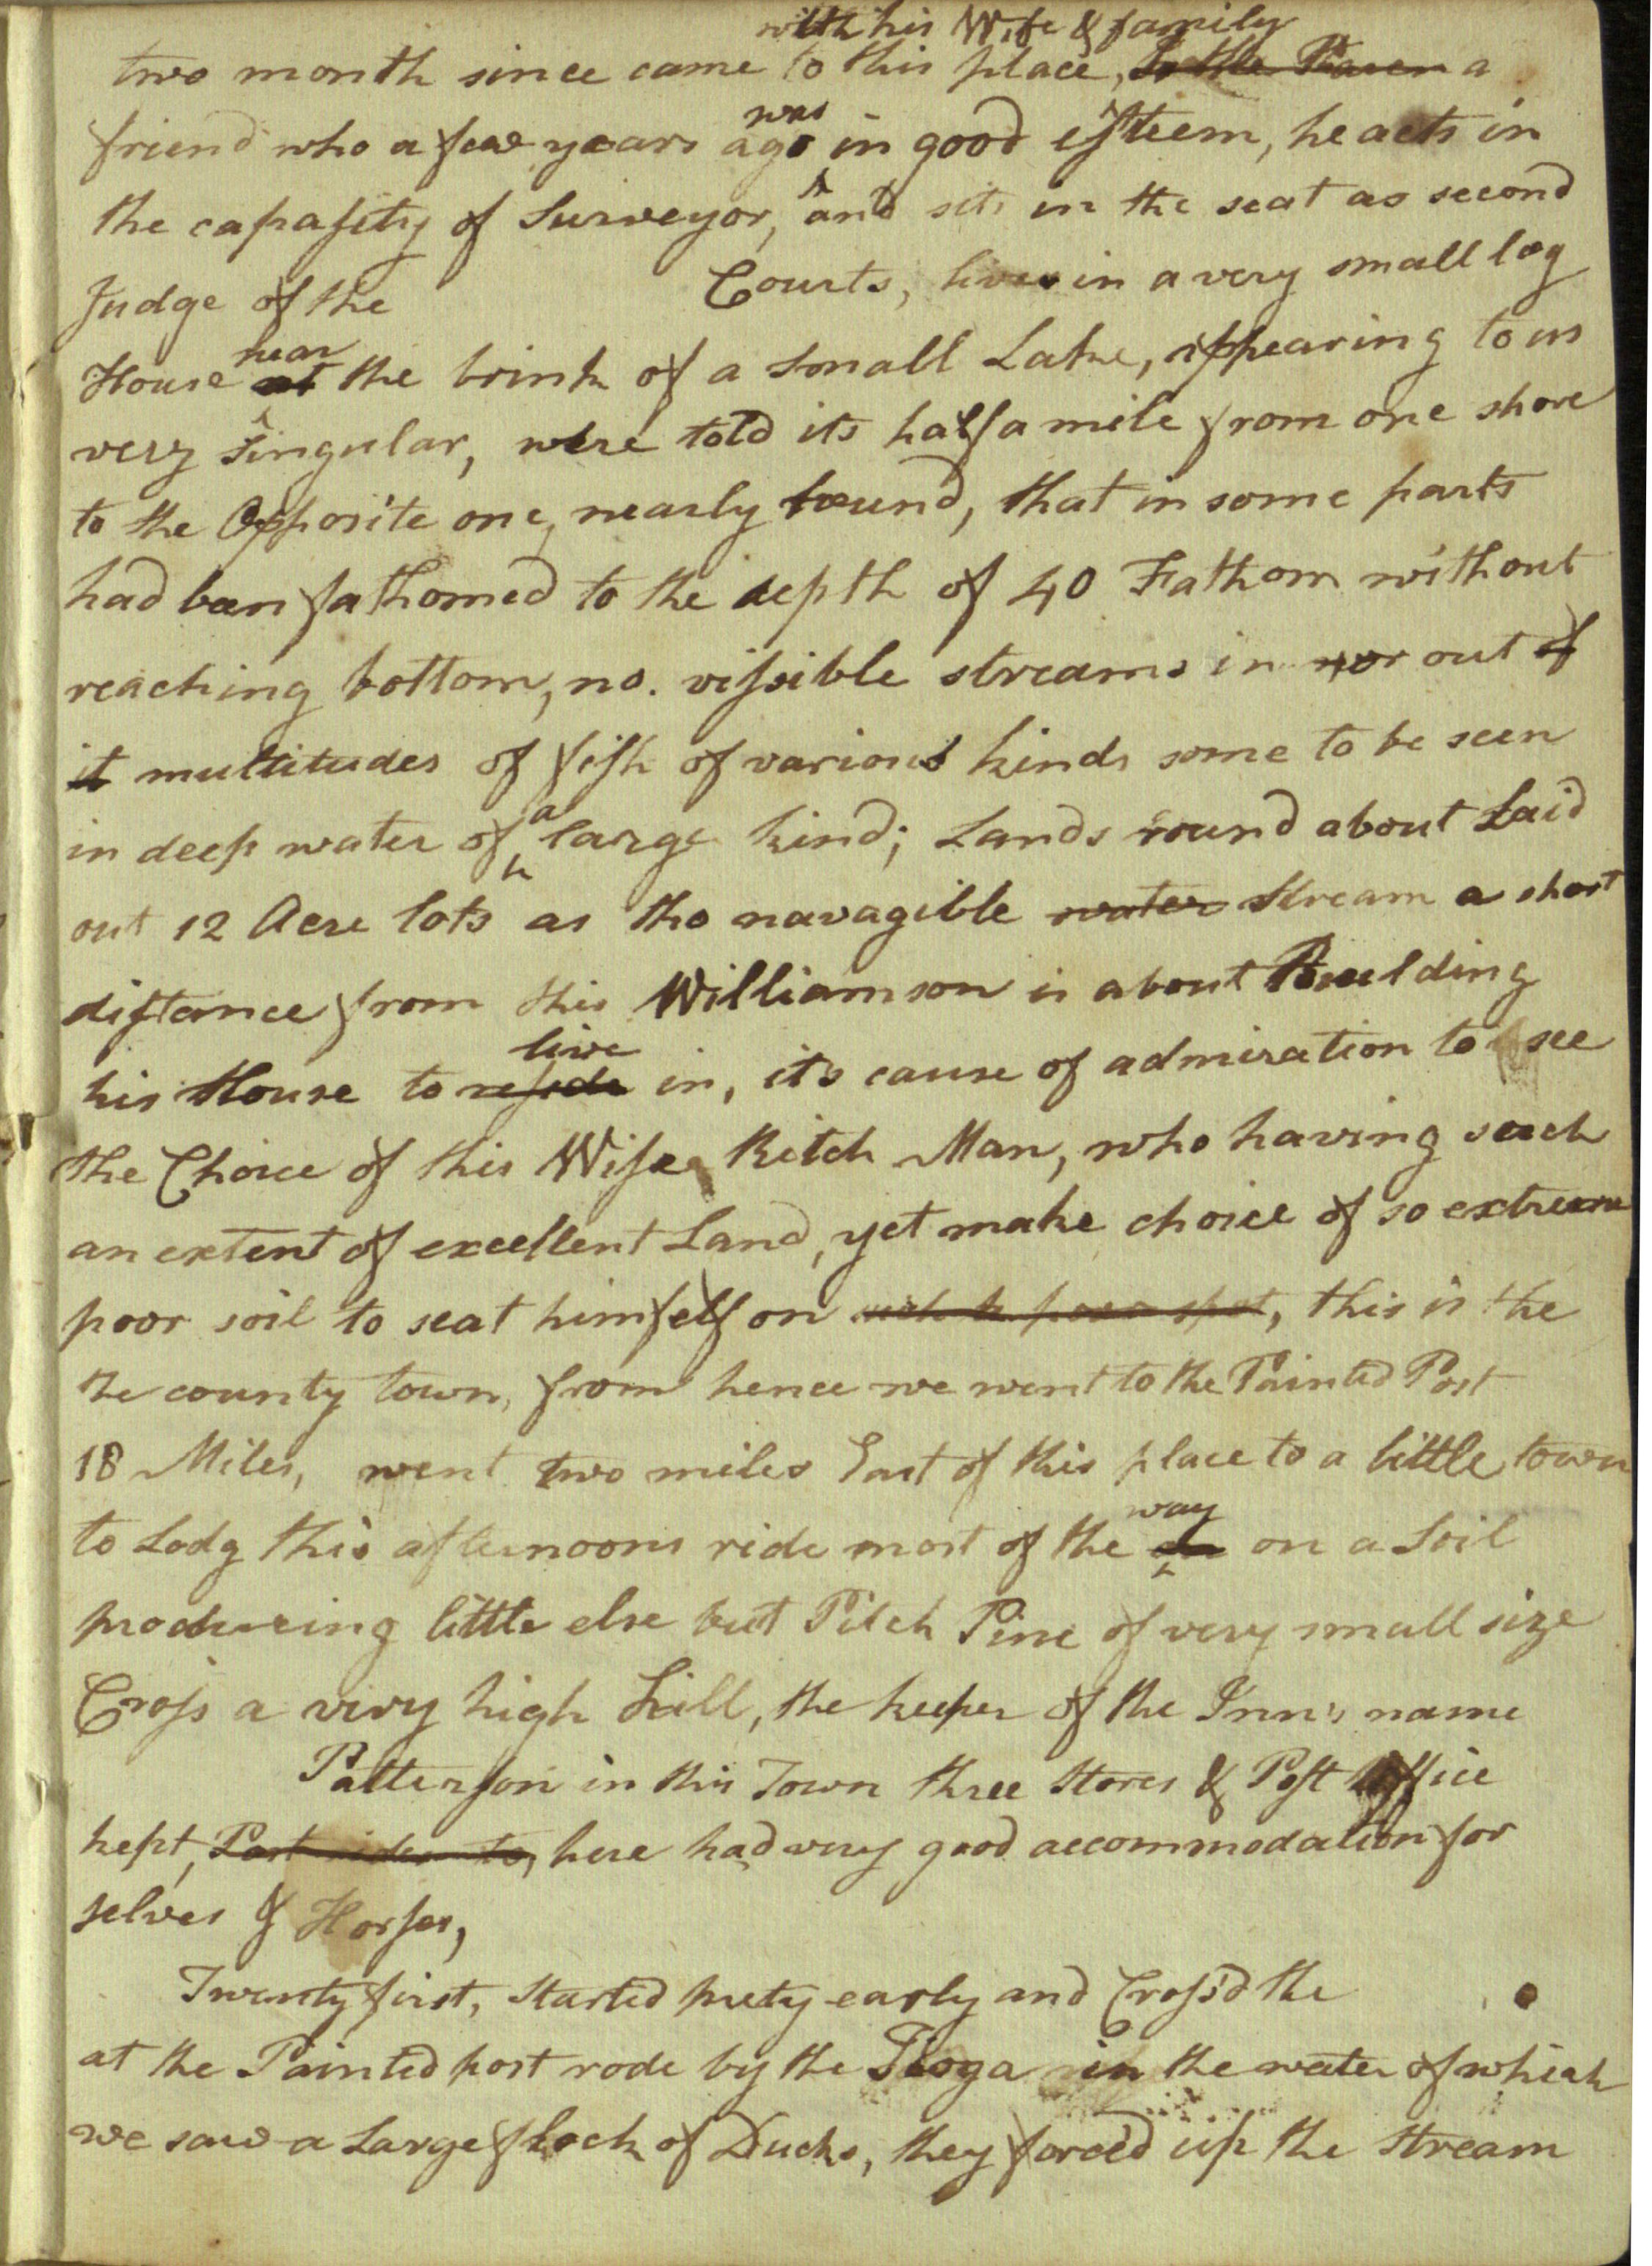 with his Wife & family
two month since came to this place, a
was
friend who a few years ago in good esteem, he acts in
the capasity of Surveyor, and sits in the seat as second
Judge of the Courts, lives in a very small log
near
House at the brink of a small Lake, appearing to us
very singular, were told its half a mile from one shore
to the Opposite one, nearly round, that in some parts
had ben fathomed to the depth of 40 Fathom without
reaching bottom, no. vissible streams in nor out of
it multitudes of fish of various kinds some to be seen
a
in deep water of large kind; Lands round about Laid
out 12 Acre lots as tho navagible water stream a short
distance from this Williamson is about Buelding
live
his House to reside in, it's cause of admiration to see
the Choice of this Wise Ritch Man, who having such
an extent of excellent Land, yet make choice of so extreem
poor soil to seat himself on spot, this is the
the county town, from hence we went to the Painted Post
18 Miles, went two miles East of this place to a little town
way
to Lodg this afternoons ride most of the on a Soil
producing little else but Pitch Pine of very small size
Cross a very high hill, the keeper of the Inn's name
Patterson in this Town three Stores & Post Office
kept, Post rider to, here had very good accommodation for
selves & Horses,
Twenty first, Started prety early and Cross'd the
at the Painted post rode by the Tioga in the water of which
we saw a Large flock of Ducks, they forced up the Stream